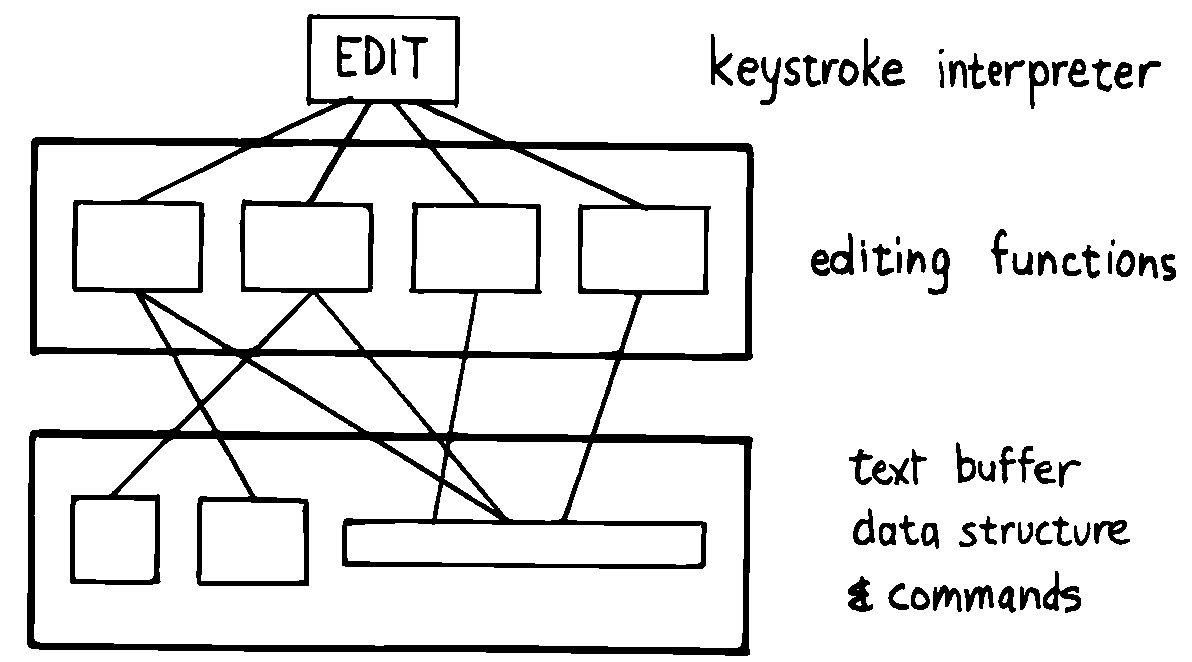 EDIT
keystroke interpreter
editing functions
text buffer
data structure
& commands